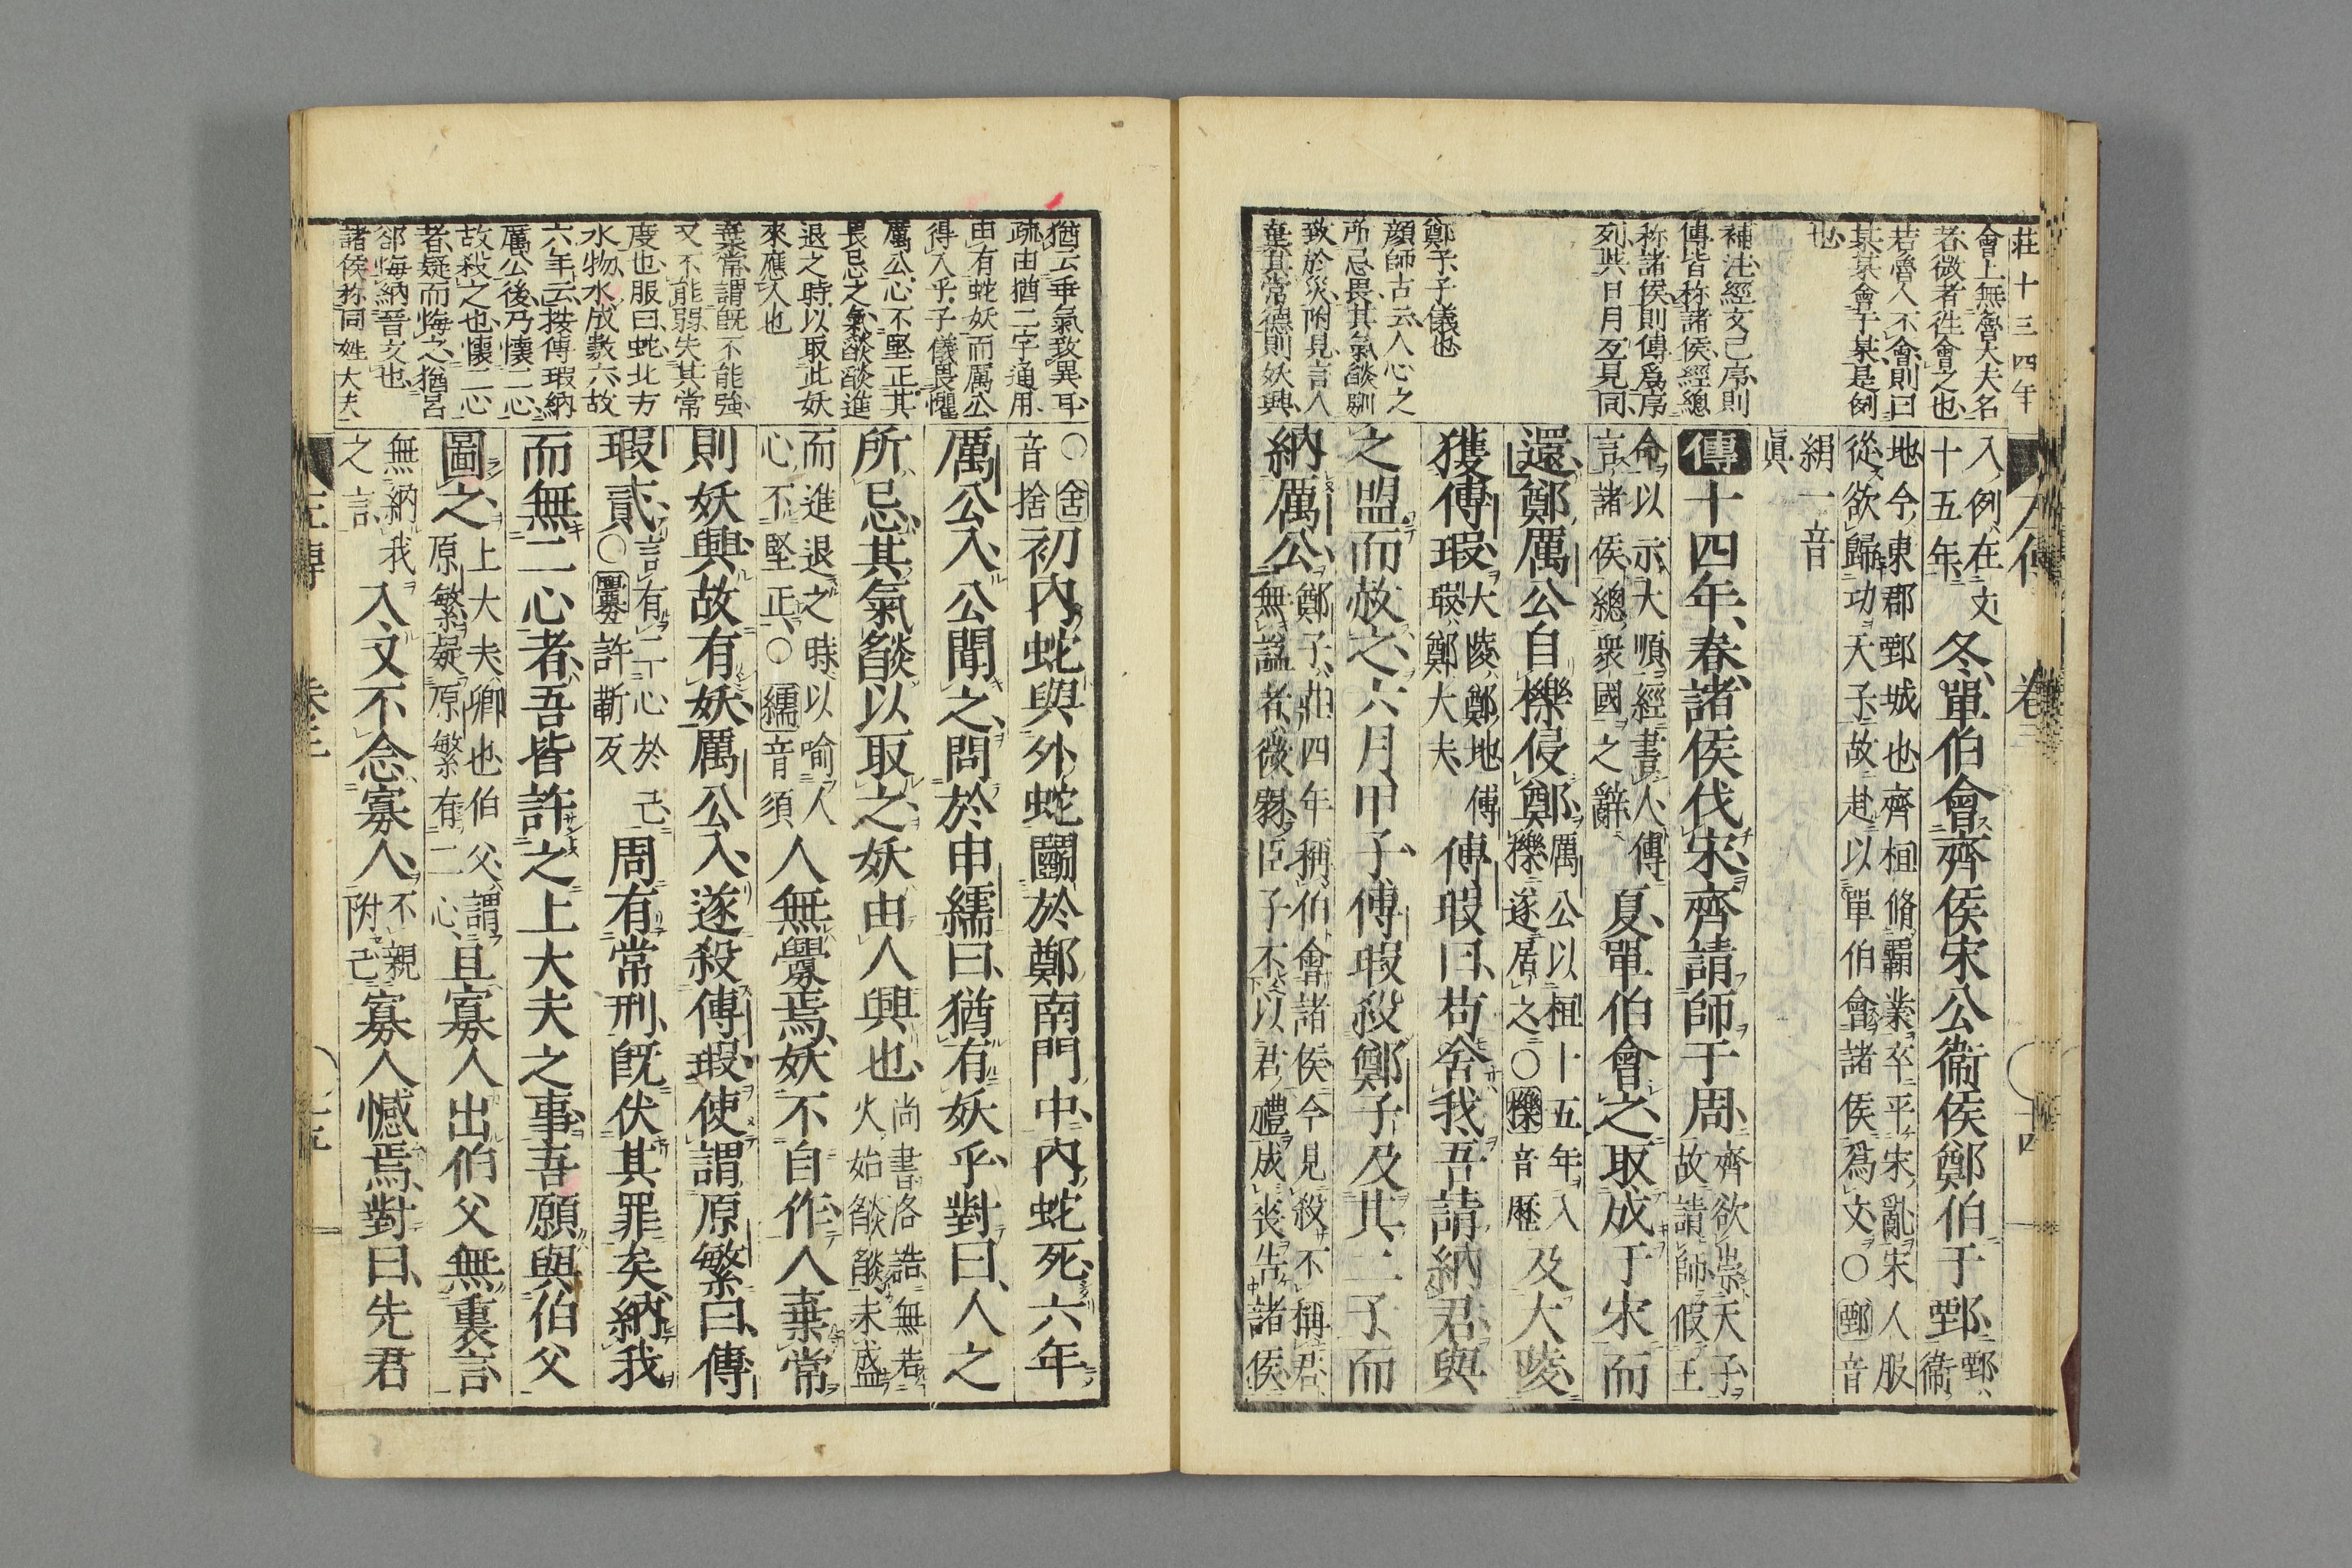 莊十三四年
會上無魯大夫名
者微者徃會之也
若魯人不會則曰
某某會于某是例
也
補注經文已序則
傳皆称諸侯經總
称諸侯則傳爲序
列其日月互見同
鄭子子儀也
顔師古云人心之
所忌畏其氣燄馴
致於災附見言人
棄其常德則妖興
左傳 卷三 十四
入例在文
十五年
冬單伯會齊侯宋公衞侯鄭伯于鄄
鄄衞
地今東郡鄄城也齊桓脩霸業卒平宋亂宋人服
從欲歸功天子故赴以單伯會諸侯爲文○鄄音
絹一音
眞
傳十四年春諸侯伐宋齊請師于周
齊欲崇天子
故請師假王
命以示大順經書人傳
言諸侯總衆國之辭
夏單伯會之取成于宋而
還鄭厲公自櫟侵鄭
厲公以桓十五年入
櫟遂居之○櫟音歷
及大陵
獲傅瑕
大陵鄭地傅
瑕鄭大夫
傅瑕曰苟舍我吾請納君與
之盟而赦之六月甲子傅瑕殺鄭子及其二子而
納厲公
鄭子莊四年稱伯會諸侯今見殺不稱君
無謚者微弱臣子不以君禮成喪告諸侯
猶云乗氣致異耳
疏由猶二字通用
由有蛇妖而厲公
得入乎子儀畏懼
厲公心不堅正其
畏忌之氣燄燄進
退之時以取此妖
來應人也
棄常謂既不能強
又不能弱失其常
度也服曰蛇北方
水物水成數六故
六年云按傅瑕納
厲公後乃懐二心
故殺之也懐二心
者疑而悔之猶呂
郤悔納晋文也
諸侯称同姓大夫
○舍
音捨
初內蛇與外蛇鬭於鄭南門中內蛇死六年
厲公入公聞之問於申繻曰猶有妖乎對曰人之
所忌其氣燄以取之妖由人興也
尚書洛誥無若
火始燄燄未盛
而進退之時以喻人
心不堅正○繻音須
人無釁焉妖不自作人棄常
則妖興故有妖厲公入遂殺傅瑕使謂原繁曰傅
瑕貳
言有二心於己
○釁許靳反
周有常刑既伏其罪矣納我
而無二心者吾皆許之上大夫之事吾願與伯父
圖之
上大夫卿也伯父謂
原繁疑原繁有二心
且寡人出伯父無裏言
無納我
之言
入又不念寡人
不親
附己
寡人憾焉對曰先君
左傳 十五